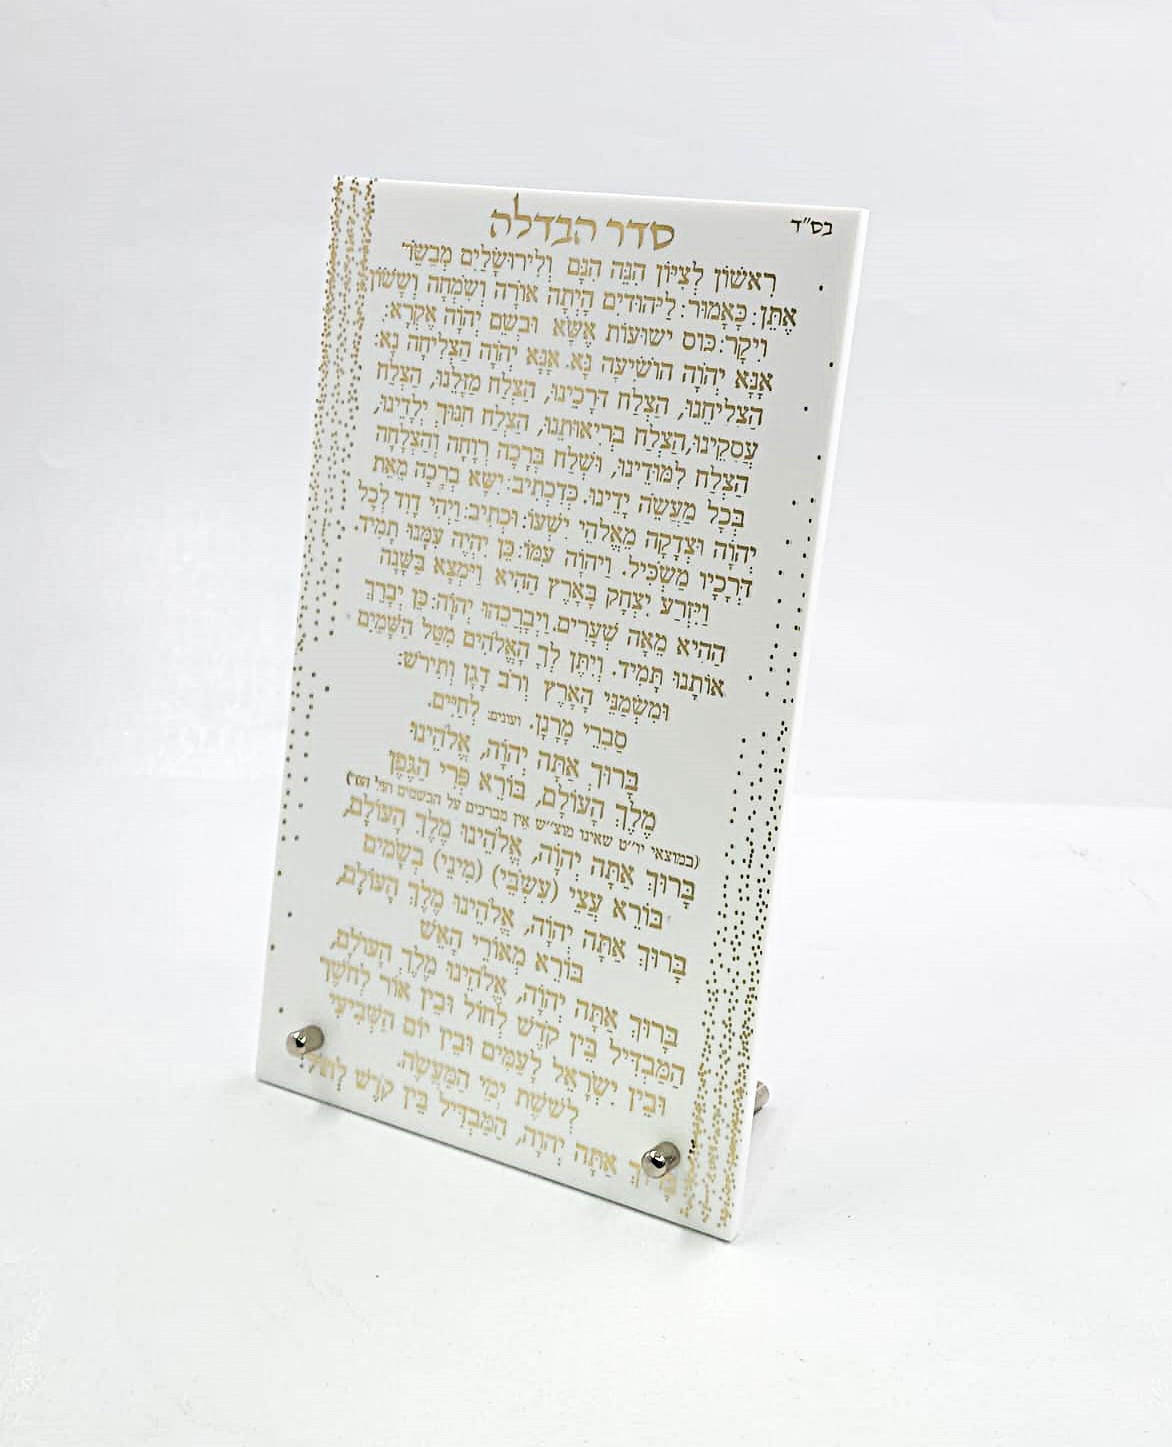 בס"ד
סדר הבדלה
רִאשׁוֹן לְצִיּוֹן הִנֵּה הִנָּם וְלִירוּשָׁלַיִם מְבַשֵּׂר
אֶתֵּן: כָּאָמוּר: לַיְּהוּדִים הָיְתָה אוֹרָה וְשִׂמְחָה וְשָׂשׂוֹן
וִיקָר: כּוֹס יְשׁוּעוֹת אֶשָּׂא וּבְשֵׁם יְהֹוָה אֶקְרָא:
אָנָּא יְהֹוָה הוֹשִׁיעָה נָּא. אָנָּא יְהֹוָה הַצְלִיחָה נָּא:
הַצְלִיחֵנוּ, הַצְלַח דְּרָכֵינוּ, הַצְלַח מַזָּלֵנוּ, הַצְלַח
עֲסָקֵינוּ, הַצְלַח בְּרִיאוּתֵנוּ, הַצְלַח חִנּוּךְ יְלָדֵינוּ,
הַצְלַח לִמּוּדֵינוּ, וּשְׁלַח בְּרָכָה רְוָחָה וְהַצְלָחָה
בְּכָל מַעֲשֵׂה יָדֵינוּ. כְּדִכְתִיב: יִשָּׂא בְרָכָה מֵאֵת
יְהֹוָה וּצְדָקָה מֵאֱלֹהֵי יִשְׁעוֹ: וּכְתִיב: וַיְהִי דָוִד לְכָל
דְּרָכָיו מַשְׂכִּיל. וַיהֹוָה עִמּוֹ: כֵּן יִהְיֶה עִמָּנוּ תָּמִיד.
וַיִּזְרַע יִצְחָק בָּאָרֶץ הַהִיא וַיִּמְצָא בַּשָּׁנָה
הַהִיא מֵאָה שְׁעָרִים. וַיְבָרְכֵהוּ יְהֹוָה: כֵּן יְבָרֵךְ
אוֹתָנוּ תָּמִיד. וְיִתֶּן לְךָ הָאֱלֹהִים מִטַּל הַשָּׁמַיִם
וּמִשְׁמַנֵּי הָאָרֶץ וְרֹב דָּגָן וְתִירֹשׁ:
סַבְרֵי מָרָנָן. ועונים: לְחַיִּים.
בָּרוּךְ אַתָּה יְהֹוָה, אֱלֹהֵינוּ
מֶלֶךְ הָעוֹלָם, בּוֹרֵא פְּרִי הַגֶּפֶן
(במוצאי יו"ט שאינו מוצ"ש אין מברכים על הבשמים ועל האש)
בָּרוּךְ אַתָּה יְהֹוָה, אֱלֹהֵינוּ מֶלֶךְ הָעוֹלָם,
בּוֹרֵא עֲצֵי (עִשְׂבֵי) (מִינֵי) בְשָׂמִים
בָּרוּךְ אַתָּה יְהֹוָה, אֱלֹהֵינוּ מֶלֶךְ הָעוֹלָם,
בּוֹרֵא מְאוֹרֵי הָאֵשׁ
בָּרוּךְ אַתָּה יְהֹוָה, אֱלֹהֵינוּ מֶלֶךְ הָעוֹלָם,
הַמַּבְדִּיל בֵּין קֹדֶשׁ לְחוֹל וּבֵין אוֹר לְחֹשֶׁךְ
וּבֵין יִשְׂרָאֵל לָעַמִּים וּבֵין יוֹם הַשְּׁבִיעִי
לְשֵׁשֶׁת יְמֵי הַמַּעֲשֶׂה.
בָּרוּךְ אַתָּה יְהֹוָה, הַמַּבְדִּיל בֵּין קֹדֶשׁ לְחוֹל: